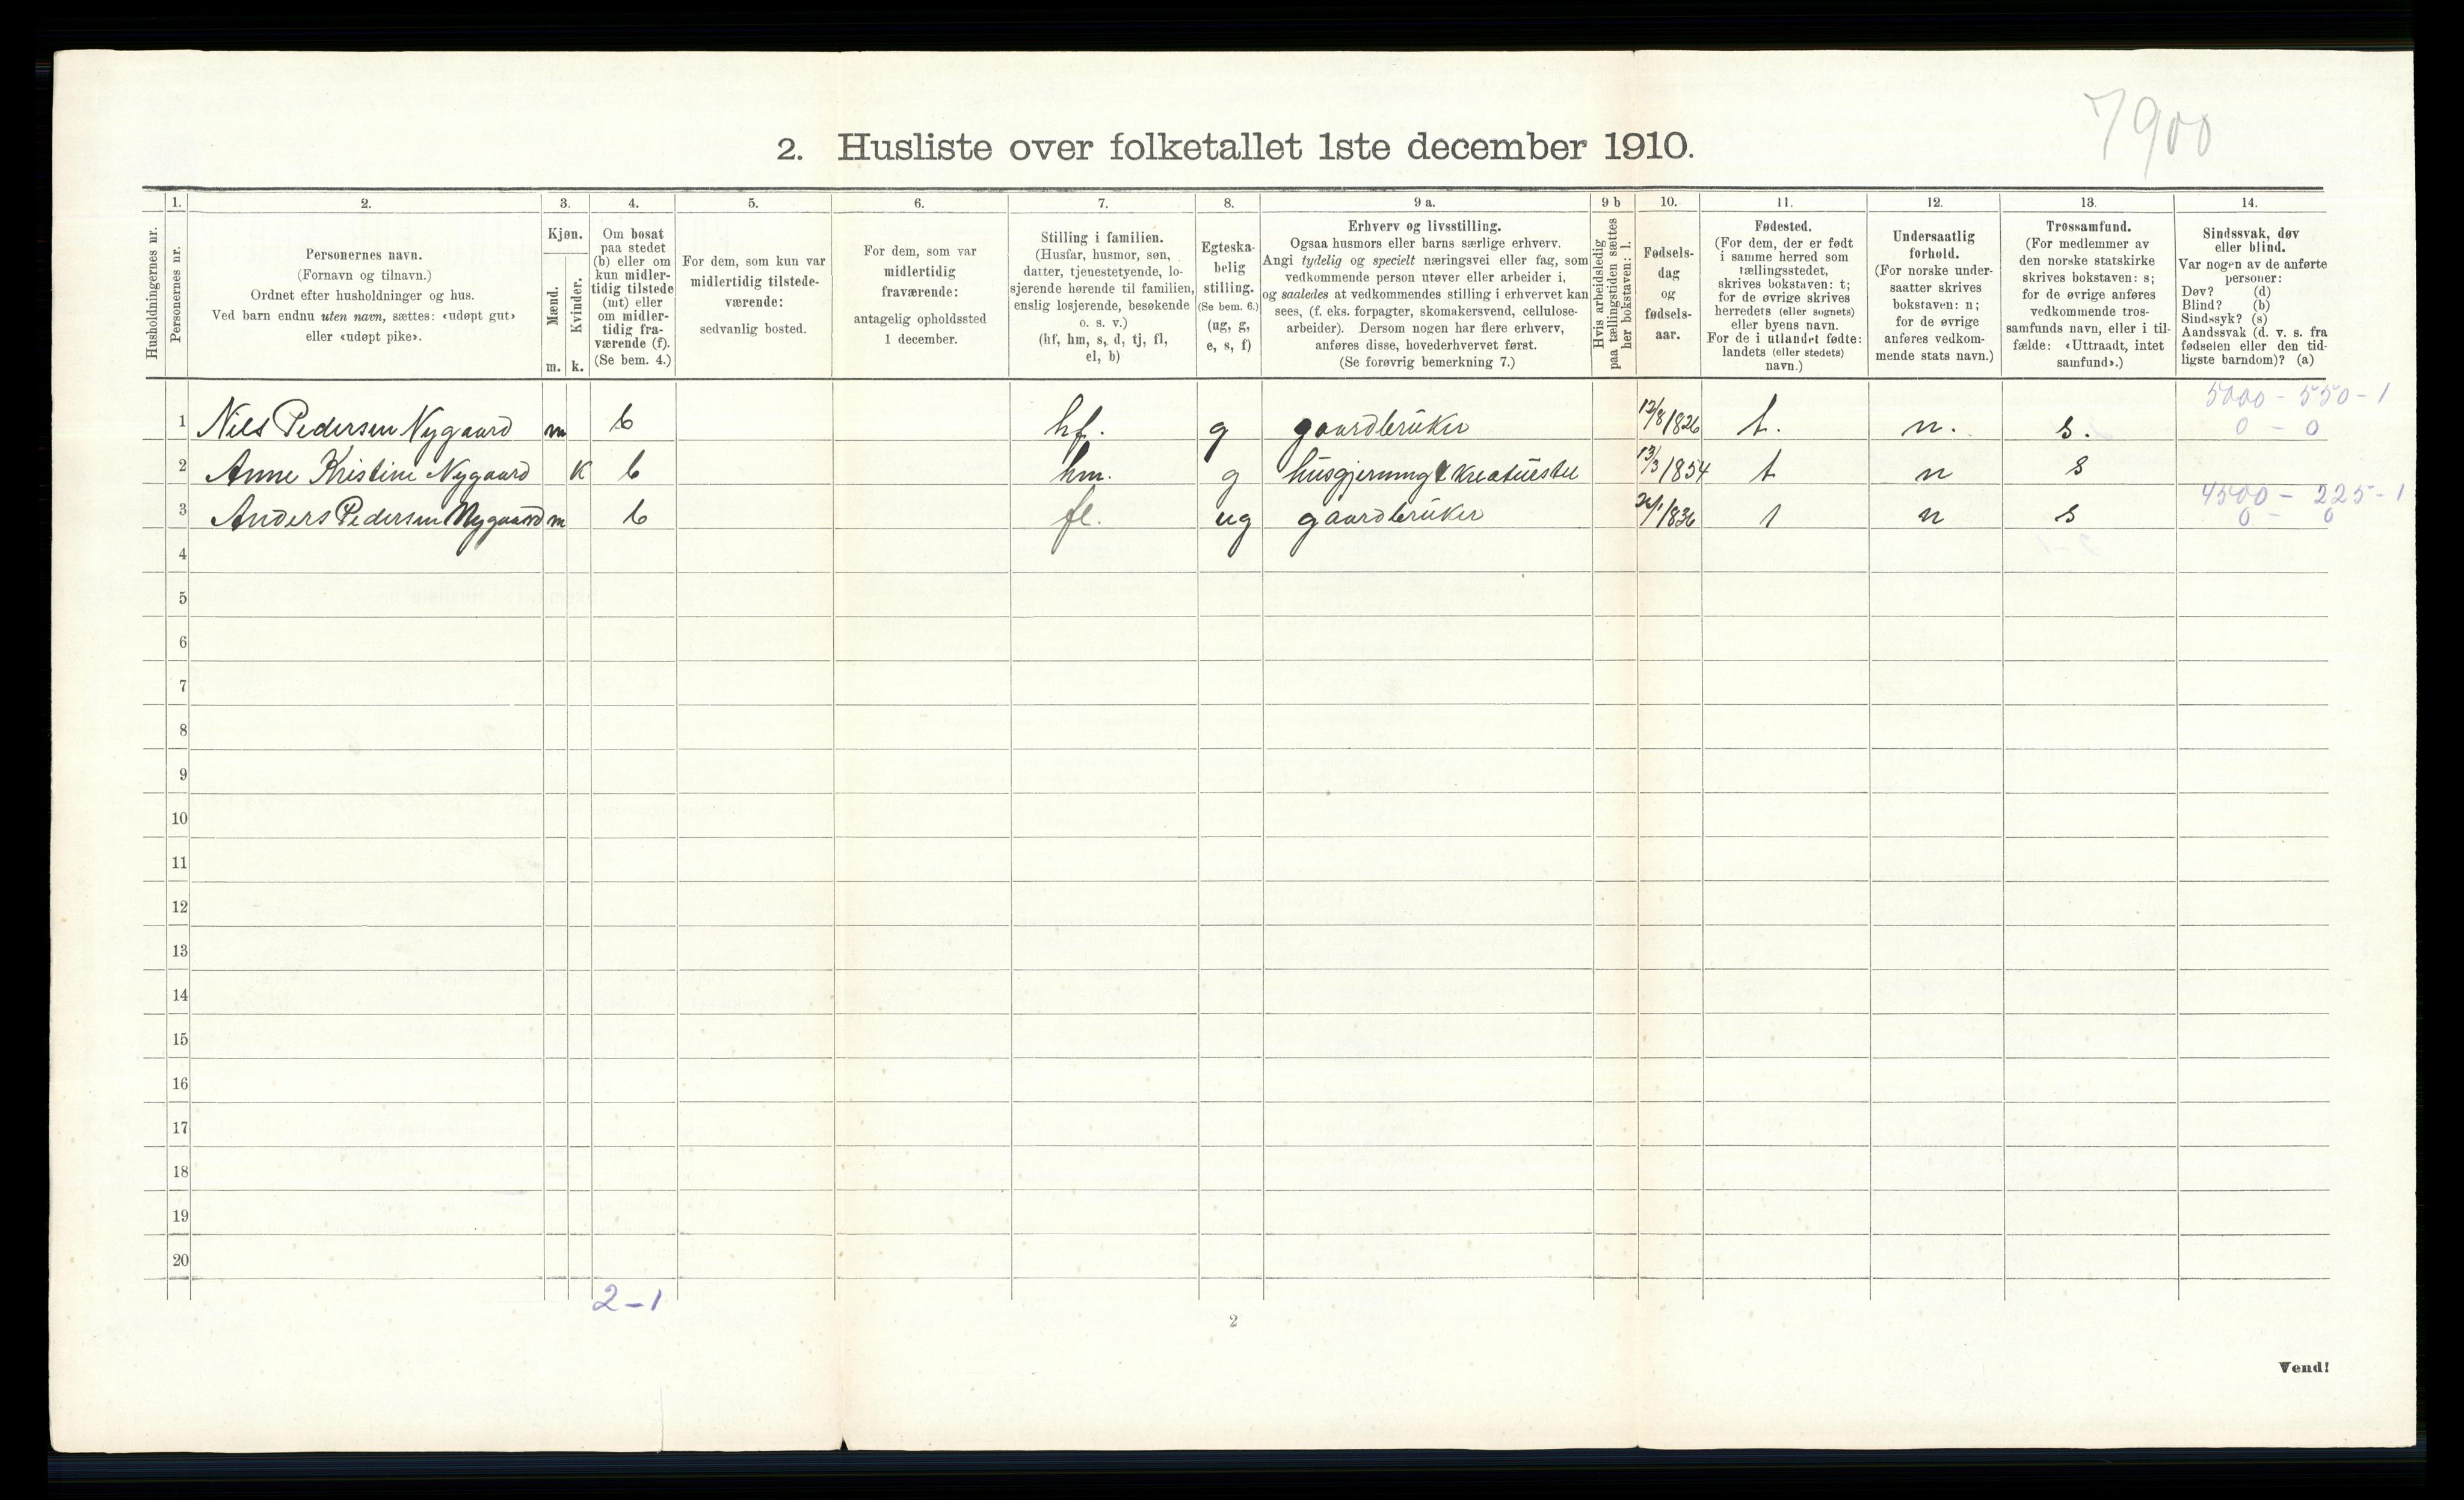 7900
2. Husliste over folketallet 1ste december 1910.
1. 2. 3. 4. 5. 6. 7. 8. 9 a. 9 b 10. 11. 12. 13. 14.
Husholdningernes nr.
Personernes nr.
Personernes navn.
(Fornavn og tilnavn.)
Ordnet efter husholdninger og hus.
Ved barn endnu uten navn, sættes: «udøpt gut»
eller «udøpt pike».
Kjøn.
Mænd.
Kvinder.
m. k.
Om bosat
paa stedet
(b) eller om
kun midler-
tidig tilstede
(mt) eller
om midler-
tidig fra-
værende (f).
(Se bem. 4.)
For dem, som kun var
midlertidig tilstede-
værende:
sedvanlig bosted.
For dem, som var
midlertidig
fraværende:
antagelig opholdssted
1 december.
Stilling i familien.
(Husfar, husmor, søn,
datter, tjenestetyende, lo-
sjerende hørende til familien,
enslig losjerende, besøkende
o. s. v.)
(hf, hm, s, d, tj, fl,
el, b)
Egteska-
belig
stilling.
(Se bem. 6.)
(ug, g,
e, s, f)
Erhverv og livsstilling.
Ogsaa husmors eller barns særlige erhverv.
Angi tydelig og specielt næringsvei eller fag, som
vedkommende person utøver eller arbeider i,
og saaledes at vedkommendes stilling i erhvervet kan
sees, (f. eks. forpagter, skomakersvend, cellulose-
arbeider). Dersom nogen har flere erhverv,
anføres disse, hovederhvervet først.
(Se forøvrig bemerkning 7.)
Hvis arbeidsledig
paa tællingstiden sættes
her bokstaven: l.
Fødsels-
dag
og
fødsels-
aar.
Fødested.
(For dem, der er født
i samme herred som
tællingsstedet,
skrives bokstaven: t;
for de øvrige skrives
herredets (eller sognets)
eller byens navn.
For de i utlandet fødte:
landets (eller stedets)
navn.)
Undersaatlig
forhold.
(For norske under-
saatter skrives
bokstaven: n;
for de øvrige
anføres vedkom-
mende stats navn.)
Trossamfund.
(For medlemmer av
den norske statskirke
skrives bokstaven: s;
for de øvrige anføres
vedkommende tros-
samfunds navn, eller i til-
fælde: «Uttraadt, intet
samfund».)
Sindssvak, døv
eller blind.
Var nogen av de anførte
personer:
Døv? (d)
Blind? (b)
Sindssyk? (s)
Aandssvak (d. v. s. fra
fødselen eller den tid-
ligste barndom)? (a)
5000 - 550 - 1
1 Nils Pedersen Nygaard m b hf. g gaardbruker 12/8 1826 t. n. s. 0 - 0
2 Anne Kristine Nygaard k b hm. g husgjerning & kreaturstel 13/3 1854 t n s
4500 - 225 - 1
3 Anders Pedersen Nygaard m b fl. ug gaardbruker 1836 t n s 0 - 0
4
5
6
7
8
9
10
11
12
13
14
15
16
17
18
19
20
2 - 1
2
Vend!